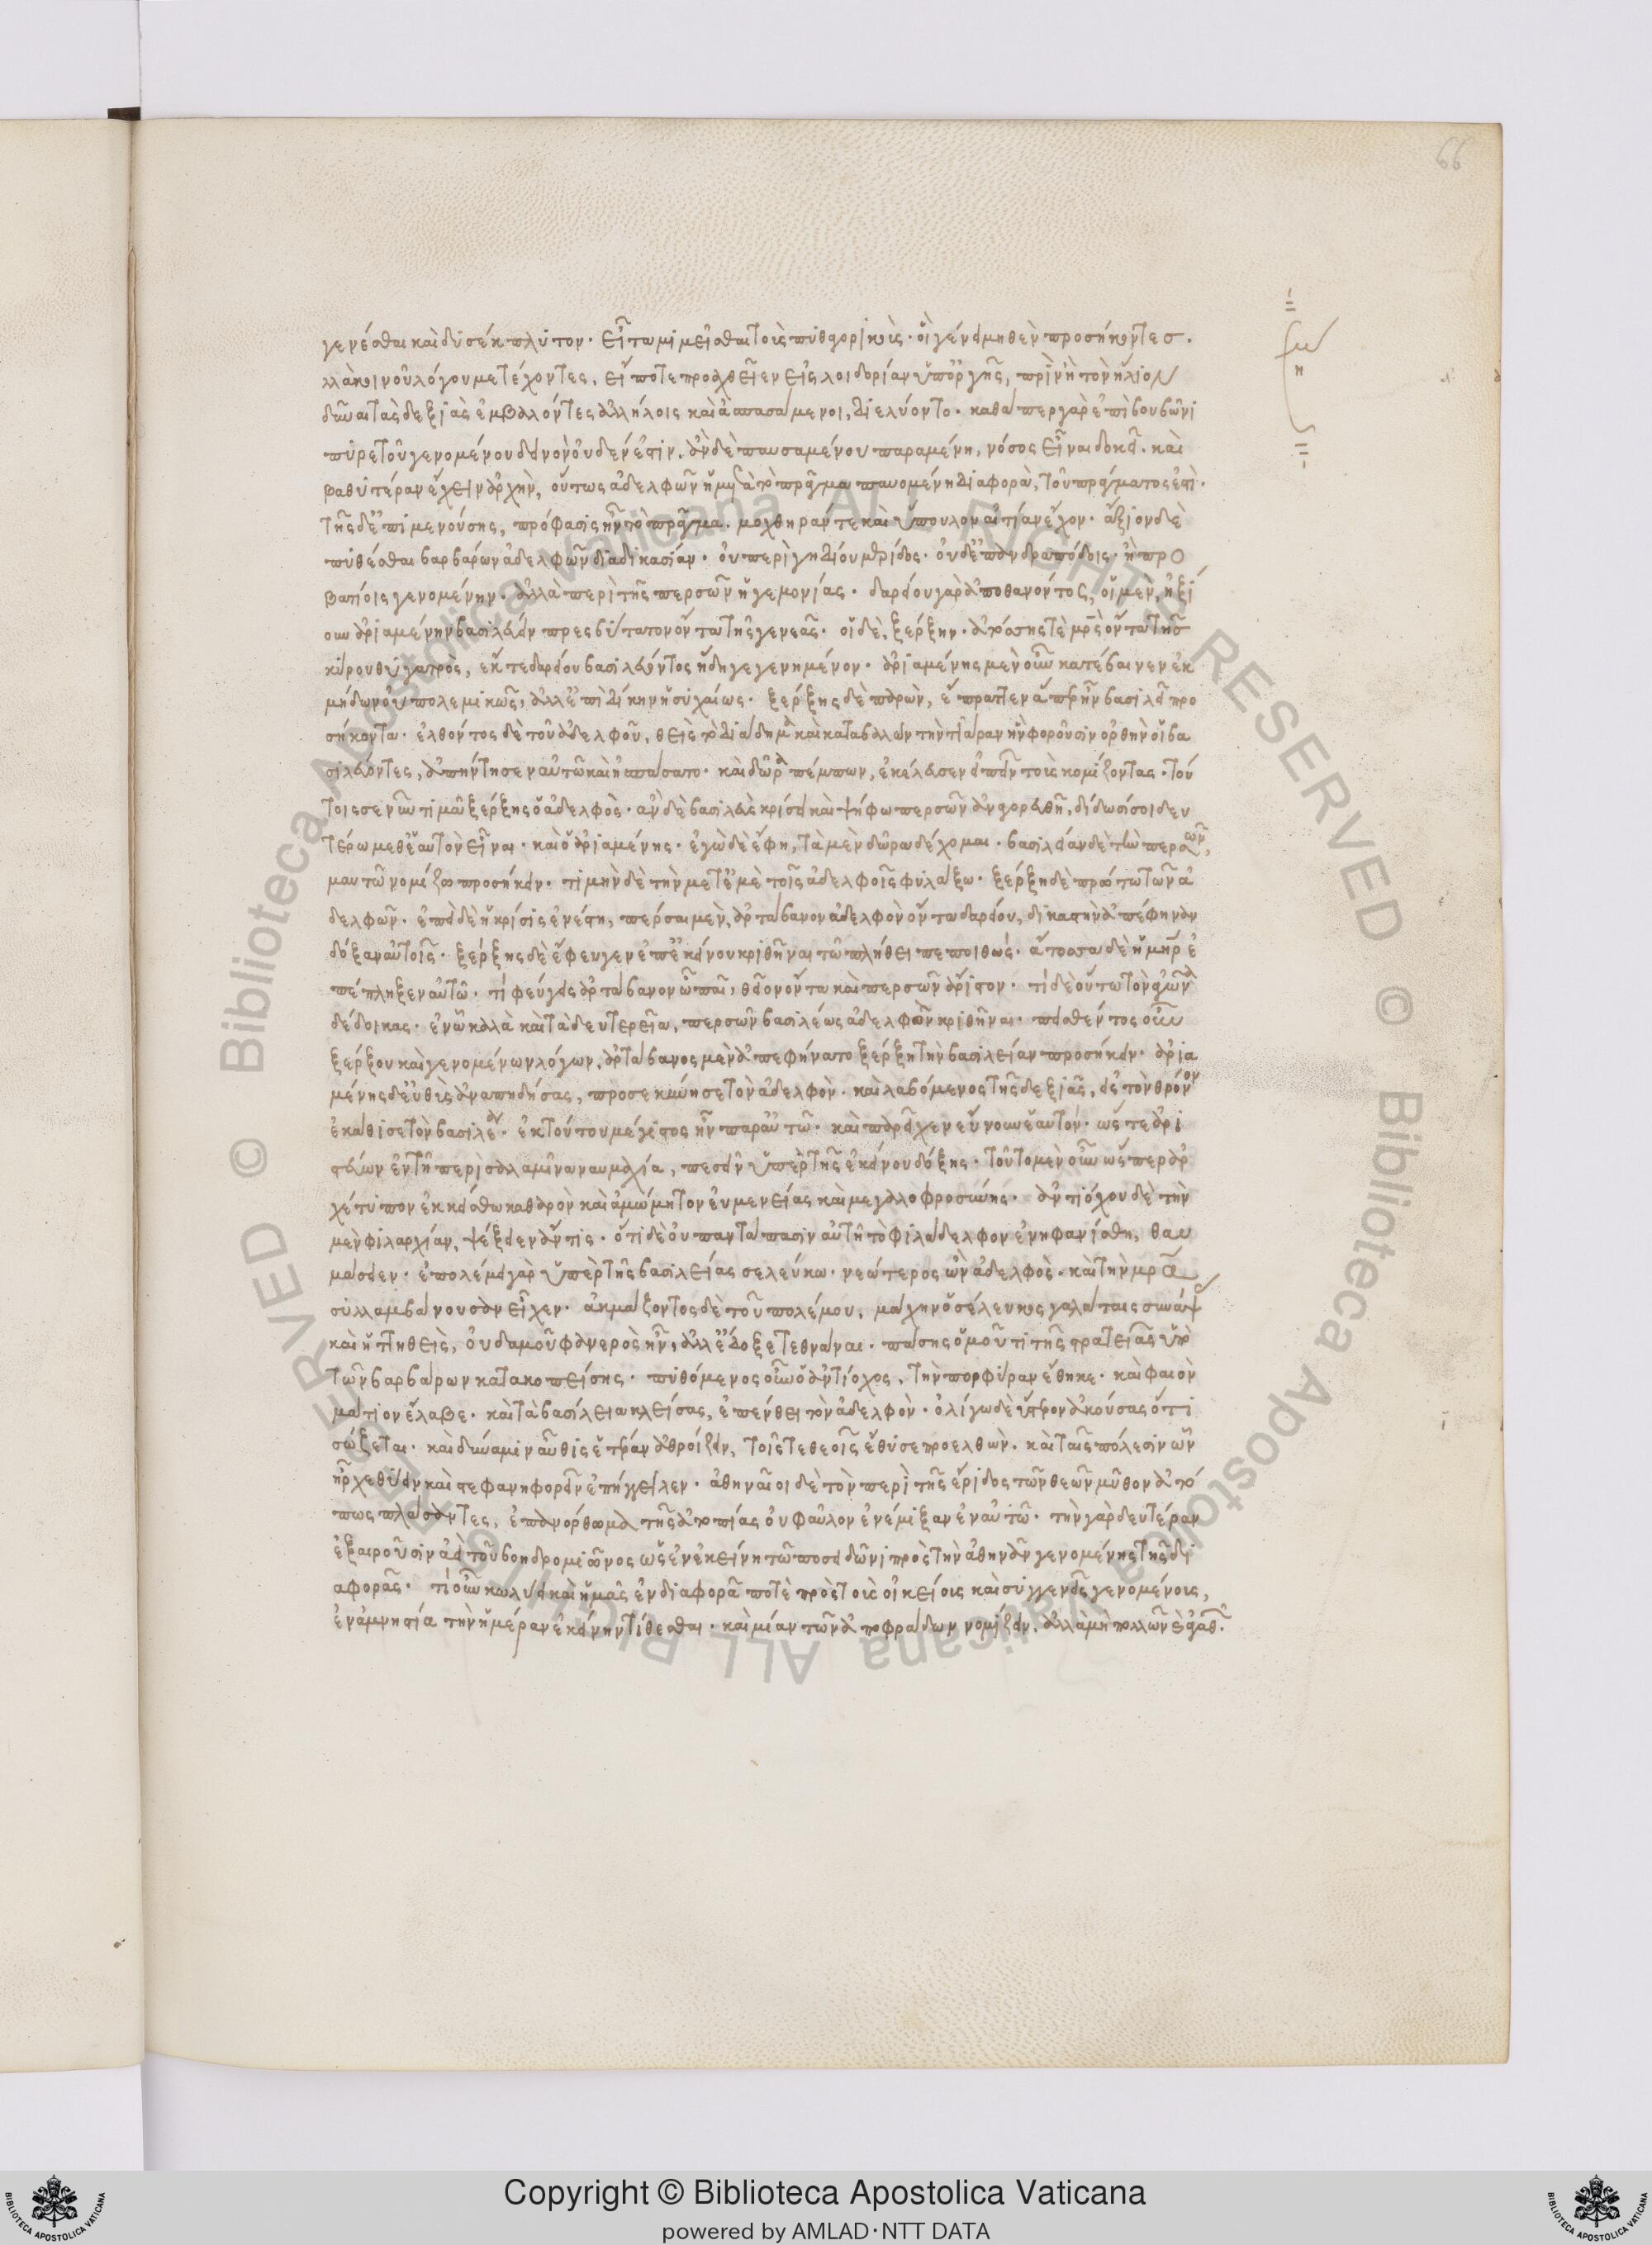 66
γενέσθαι καὶ δυσέκπλυτον. εἶτα μιμεῖσθαι τοὺς πυθαγορικοὺς. οἳ γένει μηθὲν προσήκοντες.
ἀλλὰ κοινοῦ λόγου μετέχοντες, εἴ ποτε προαχθεῖεν εἰς λοιδορίαν ὑπ' ὀργῆς, πρὶν ἢ τὸν ἥλιον
δῦναι τὰς δεξιὰς ἐμβαλόντες ἀλλήλοις καὶ ἀσπασάμενοι, διελύοντο. καθάπερ γὰρ ἐπὶ βουβῶνι
πυρετοῦ γενομένου δεινὸν οὐδέν ἐστιν. ἂν δὲ παυσαμένου παραμένη, νόσος εἶναι δοκεῖ. καὶ
βαθυτέραν ἔχειν ἀρχὴν, οὕτως ἀδελφῶν ἡ μετὰ τὸ πρᾶγμα παυομένη διαφορὰ, τοῦ πράγματος ἐστὶ.
τῆς δ' ἐπιμενούσης, πρόφασις ἦν τὸ πρᾶγμα. μοχθηράν τε καὶ ὕπουλον αἰτίαν ἔχον. ἄξιον δὲ
πυθέσθαι βαρβάρων ἀδελφῶν διαδικασίαν. οὐ περὶ γηδίου μερίδος. οὐδ' ἐπ' ἀνδραπόδοις. ἢ προ
βατίοις γενομένην. ἀλλὰ περὶ τῆς περσῶν ἡγεμονίας. δαρείου γὰρ ἀποθανόντος, οἱ μὲν, ἠξί
ουν ἀριαμένην βασιλεύειν πρεσβύτατον ὄντα τῆς γενεᾶς. οἱ δὲ, ξέρξην. ἀτόσσης τὲ μητρὸς ὄντα τῆς
κύρου θυγατρὸς, ἔκ τε δαρείου βασιλεύοντος ἤδη γεγενημένον. ἀριαμένης μὲν οὖν κατέβαινεν ἐκ
μήδων οὐ πολεμικῶς, ἀλλ' ἐπὶ δίκην ἡσυχαίως. ξέρξης δὲ παρὼν, ἔπραττεν ἅπερ ἦν βασιλεῖ προ
σήκοντα. ἐλθόντος δὲ τοῦ ἀδελφοῦ, θεὶς τὸ διάδημα καὶ καταβαλὼν τὴν τιάραν ἣν φοροῦσιν ὀρθὴν οἱ βα
σιλεύοντες, ἀπήντησεν αὐτῶ καὶ ἠσπάσατο. καὶ δῶρα πέμπων, ἐκέλευσεν εἰπεῖν τοὺς κομίζοντας. τού
τοις σε νῦν τιμᾶ ξέρξης ὁ ἀδελφὸς. ἂν δὲ βασιλεὺς κρίσει καὶ ψήφω περσῶν ἀναγορευθῆ, δίδωσί σοι δευ
τέρω μεθ' ἑαυτὸν εἶναι. καὶ ὁ ἀριαμένης. ἐγὼ δὲ ἔφη, τὰ μὲν δῶρα δέχομαι. βασιλείαν δὲ τὴν περσῶν,
μαυτῶ νομίζω προσήκειν. τιμὴν δὲ τὴν μετ' ἐμὲ τοῖς ἀδελφοῖς φυλάξω. ξέρξη δὲ πρώτω τῶν ἀ
δελφῶν. ἐπεὶ δὲ ἡ κρίσις ἐνέστη, πέρσαι μὲν, ἀρτάβανον ἀδελφὸν ὄντα δαρείου, δικαστὴν ἀπέφηναν
δόξαν αὐτοῖς. ξέρξης δὲ ἔφευγεν ἐπ' ἐκείνου κριθῆναι τῶ πλήθει πεποιθώς. ἄτοσσα δὲ ἡ μήτηρ ἐ
πέπληξεν αὐτῶ. τί φεύγεις ἀρτάβανον ὦ παῖ, θεῖον ὄντα καὶ περσῶν ἄριστον. τί δὲ οὕτω τὸν ἀγῶνα
δέδοικας. ἐν ὧ καλὰ καὶ τὰ δευτερεῖα, περσῶν βασιλέως ἀδελφὸν κριθῆναι. πεισθέντος οὖν
ξέρξου καὶ γενομένων λόγων, ἀρτάβανος μὲν ἀπεφήνατο ξέρξη τὴν βασιλείαν προσήκειν. ἀρια
μένης δ' εὐθὺς ἀναπηδήσας, προσεκύνησε τὸν ἀδελφὸν. καὶ λαβόμενος τῆς δεξιᾶς, εἰς τὸν θρόνον
ἐκάθισε τὸν βασίλειον. ἐκ τούτου μέγιστος ἦν παρ' αὐτῶ. καὶ παρεῖχεν εὔνουν ἑαυτόν. ὥστε ἀρι
στεύων ἐν τῆ περὶ σαλαμῖνα ναυμαχία, πεσεῖν ὑπὲρ τῆς ἐκείνου δόξης. τοῦτο μὲν οὖν ὥσπερ ἀρ
χέτυπον ἐκκείσθω καθαρὸν καὶ ἀμώμητον εὐμενείας καὶ μεγαλοφροσύνης. ἀντιόχου δὲ τὴν
μὲν φιλαρχίαν, ψέξειεν ἄν τις. ὅτι δὲ οὐ παντάπασιν αὐτῆ τὸ φιλάδελφον ἐνηφανίσθη, θαυ
μάσειεν. ἐπολέμει γὰρ ὑπὲρ τῆς βασιλείας σελεύκω. νεώτερος ὢν ἀδελφὸς. καὶ τὴν μητέρα
συλλαμβάνουσαν εἶχεν. ἀκμάζοντος δὲ τοῦ πολέμου, μάχην ὁ σέλευκος γαλάταις συνάψ
καὶ ἡττηθεὶς, οὐδαμοῦ φανερὸς ἦν, ἀλλ' ἔδοξε τεθνάναι. πάσης ὁμοῦ τι τῆς στρατείας ὑπὸ
τῶν βαρβάρων κατακοπείσης. πυθόμενος οὖν ὁ ἀντίοχος, τὴν πορφύραν ἔθηκε. καὶ φαιὸν
μάτιον ἔλαβε. καὶ τὰ βασίλεια κλείσας, ἐπένθει τὸν ἀδελφὸν. ὀλίγω δὲ ὕστερον ἀκούσας ὅτι
σώζεται. καὶ δύναμιν αὖθις ἑτέραν ἀθροίζειν, τοῖς τε θεοῖς ἔθυσε προελθὼν. καὶ ταῖς πόλεσιν ὧν
ἦρχε θύειν καὶ στεφανηφορεῖν ἐπήγγειλεν. ἀθηναῖοι δὲ τὸν περὶ τῆς ἔριδος τῶν θεῶν μῦθον ἀτό
πως πλάσαντες, ἐπανόρθωμα τῆς ἀτοπίας οὐ φαῦλον ἐνέμιξαν ἐν αὐτῶ. τὴν γὰρ δευτέραν
ἐξαιροῦσιν ἀεὶ τοῦ βοηδρομιῶνος ὡς ἐν ἐκείνη τῶ ποσειδῶνι πρὸς τὴν ἀθηνᾶν γενομένης τῆς δι
αφορᾶς. τί οὖν κωλύει καὶ ἡμᾶς ἐν διαφορᾶ ποτὲ πρὸς τοὺς οἰκείοις καὶ συγγενεῖς γενομένοις,
ἐν ἀμνηστία τὴν ἡμέραν ἐκείνην τίθεσθαι. καὶ μίαν τῶν ἀποφράδων νομίζειν. ἀλλὰ μὴ πολλῶν καὶ ἀγαθ.
Copyright © Biblioteca Apostolica Vaticana
powered by AMLAD·NTT DATA